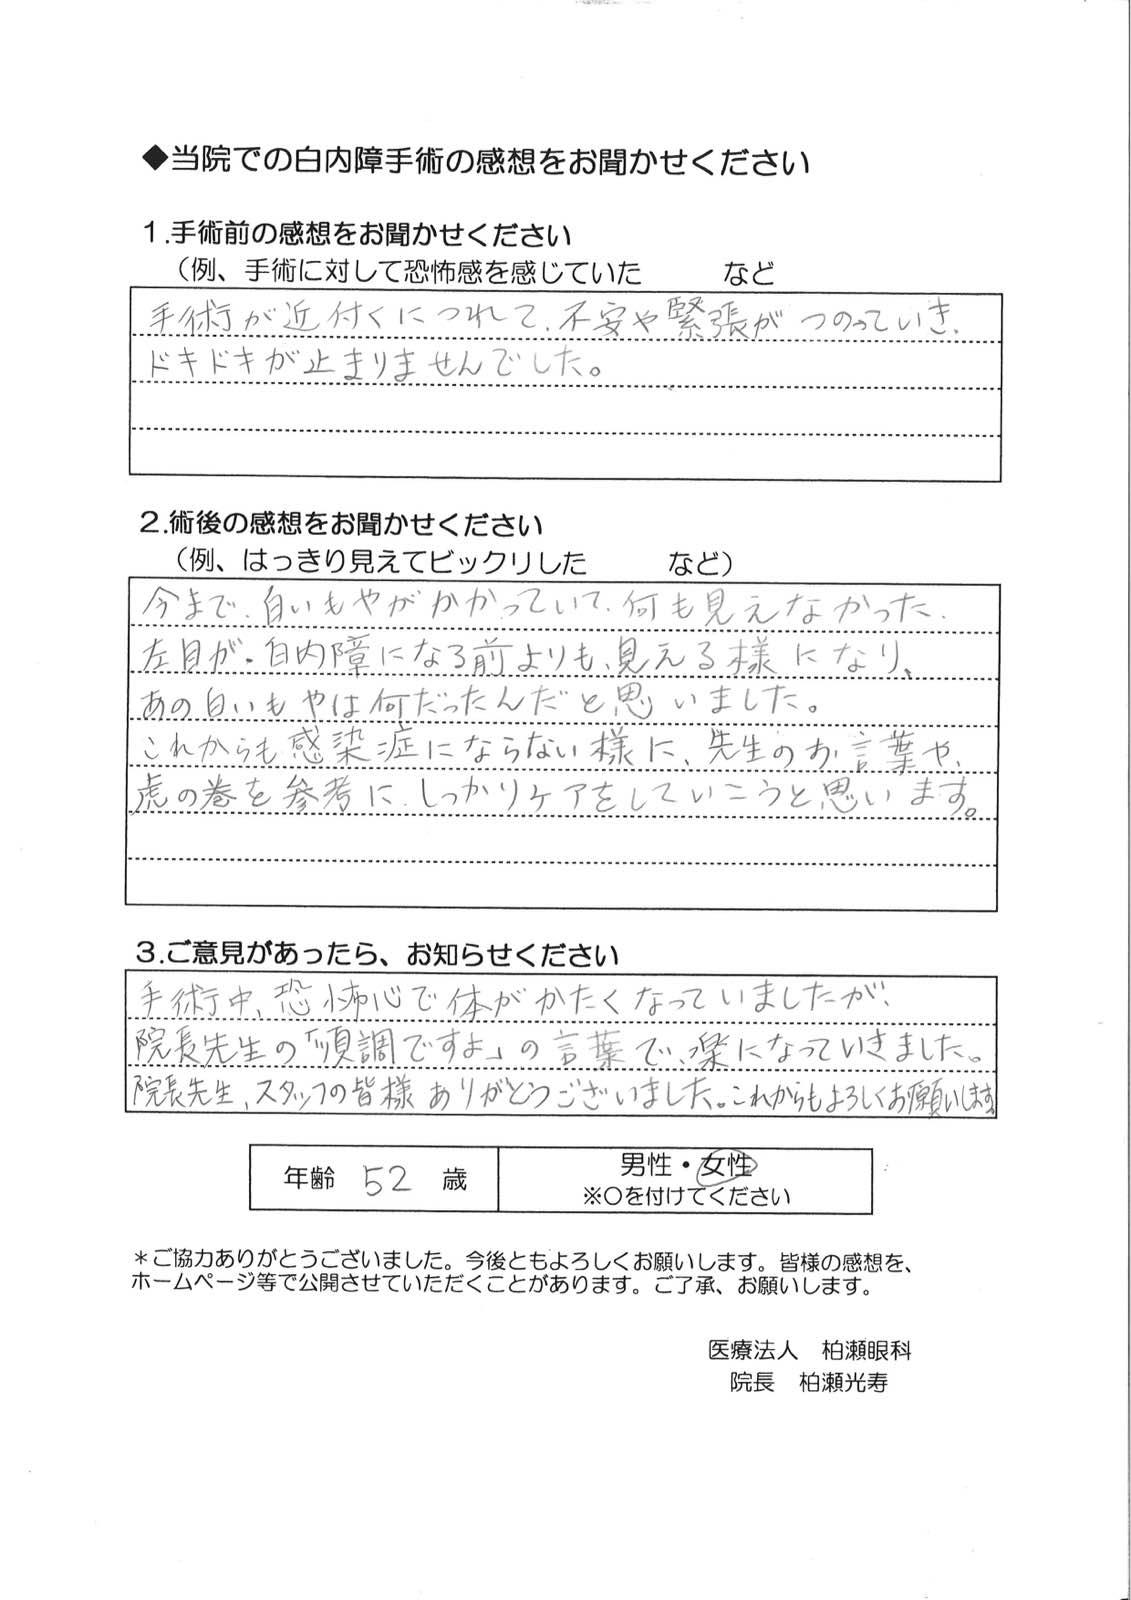 ◆当院での白内障手術の感想をお聞かせください
１.手術前の感想をお聞かせください
（例、手術に対して恐怖感を感じていた　　　など
手術が近付くにつれて、不安や緊張がつのっていき、
ドキドキが止まりませんでした。
２.術後の感想をお聞かせください
（例、はっきり見えてビックリした　　　など）
今まで、白いもやがかかっていて、何も見えなかった、
左目が、白内障になる前よりも、見える様になり、
あの白いもやは何だったんだと思いました。
これからも感染症にならない様に、先生のお言葉や、
虎の巻を参考に、しっかりケアをしていこうと思います。
３.ご意見があったら、お知らせください
手術中、恐怖心で体がかたくなっていましたが、
院長先生の「順調ですよ」の言葉で、楽になっていきました。
院長先生、スタッフの皆様ありがとうございました。これからもよろしくお願いします。
年齢　52　歳
男性・女性
※○を付けてください
＊ご協力ありがとうございました。今後ともよろしくお願いします。皆様の感想を、
ホームページ等で公開させていただくことがあります。ご了承、お願いします。
医療法人　柏瀬眼科
院長　柏瀬光寿